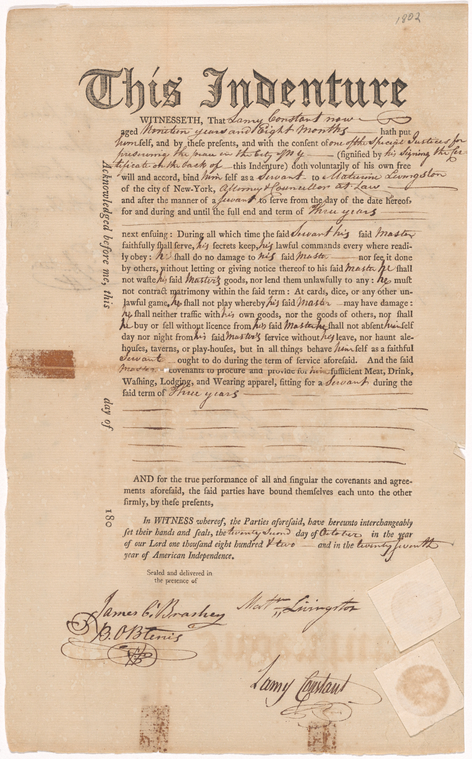 1802
This Indenture
WITNESSETH, That Lamy Constant now
aged Nineteen years and Eight Months hath put
himself, and by these presents, and with the consent of one of the Special Justices for
preserving the peace in the City of NY (signified by his signing the Cer-
tificate on the back of this Indenture) doth voluntarily of his own free
will and accord, bind him self as a Servant to Maturin Livingston
of the city of New-York, Attorney & Counsellor at Law
and after the manner of a Servant to serve from the day of the date hereof,
for and during and until the full end and term of Three years
next ensuing: During all which time the said Servant his said Master
faithfully shall serve, his secrets keep, his lawful commands every where readi-
ly obey: he shall do no damage to his said Master nor see it done
by others, without letting or giving notice thereof to his said Master he shall
not waste his said Master's goods, nor lend them unlawfully to any: he must
not contract matrimony within the said term: At cards, dice, or any other un-
lawful game, he shall not play whereby his said Master may have damage:
he shall neither traffic with his own goods, nor the goods of others, nor shall
he buy or sell without licence from his said Master he shall not absent himself
day nor night from his said Master's service without his leave, nor haunt ale-
houses, taverns, or play-houses, but in all things behave himself as a faithful
Servant ought to do during the term of service aforesaid. And the said
Master covenants to procure and provide for him sufficient Meat, Drink,
Washing, Lodging, and Wearing apparel, fitting for a Servant during the
said term of Three years
AND for the true performance of all and singular the covenants and agree-
ments aforesaid, the said parties have bound themselves each unto the other
firmly, by these presents,
In WITNESS whereof, the Parties aforesaid, have hereunto interchangeably
set their hands and seals, the twenty second day of October in the year
of our Lord one thousand eight hundred & two and in the twenty seventh
year of American Independence.
Sealed and delivered in
the presence of
Matn Livingston
Lamy Constant
Acknowledged before me, this
day of
180